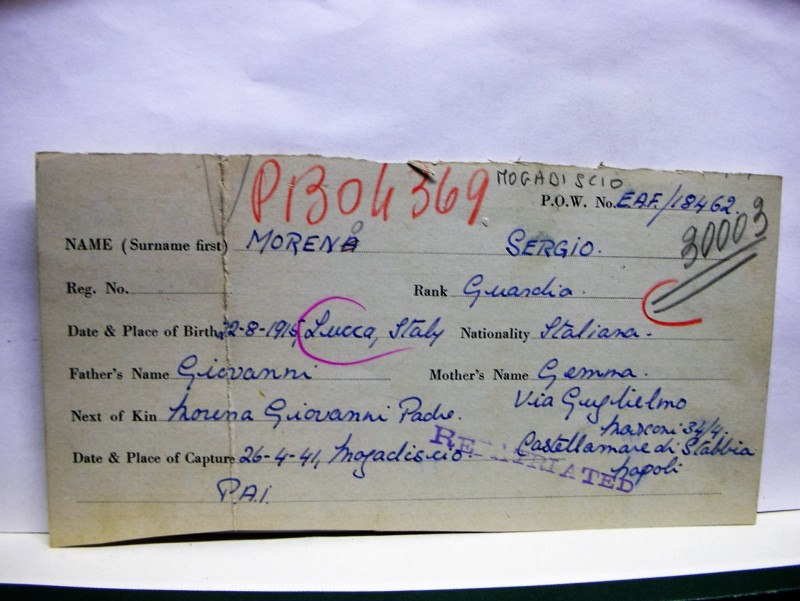 PB04369 MOGADISCIO
P.O.W. No. EAF/18462.
30003
NAME (Surname first) MORENA SERGIO.
Reg. No. Rank Guardia.
Date & Place of Birth, 22-8-1915 Lucca, Italy Nationality Italiana.
Father's Name Giovanni Mother's Name Gemma.
Next of Kin Morena Giovanni Padre. Via Guglielmo
Marconi 34/4.
Date & Place of Capture 26-4-41, Mogadiscio. Castellamare di Stabbia
Napoli
REPATRIATED
P.A.I.